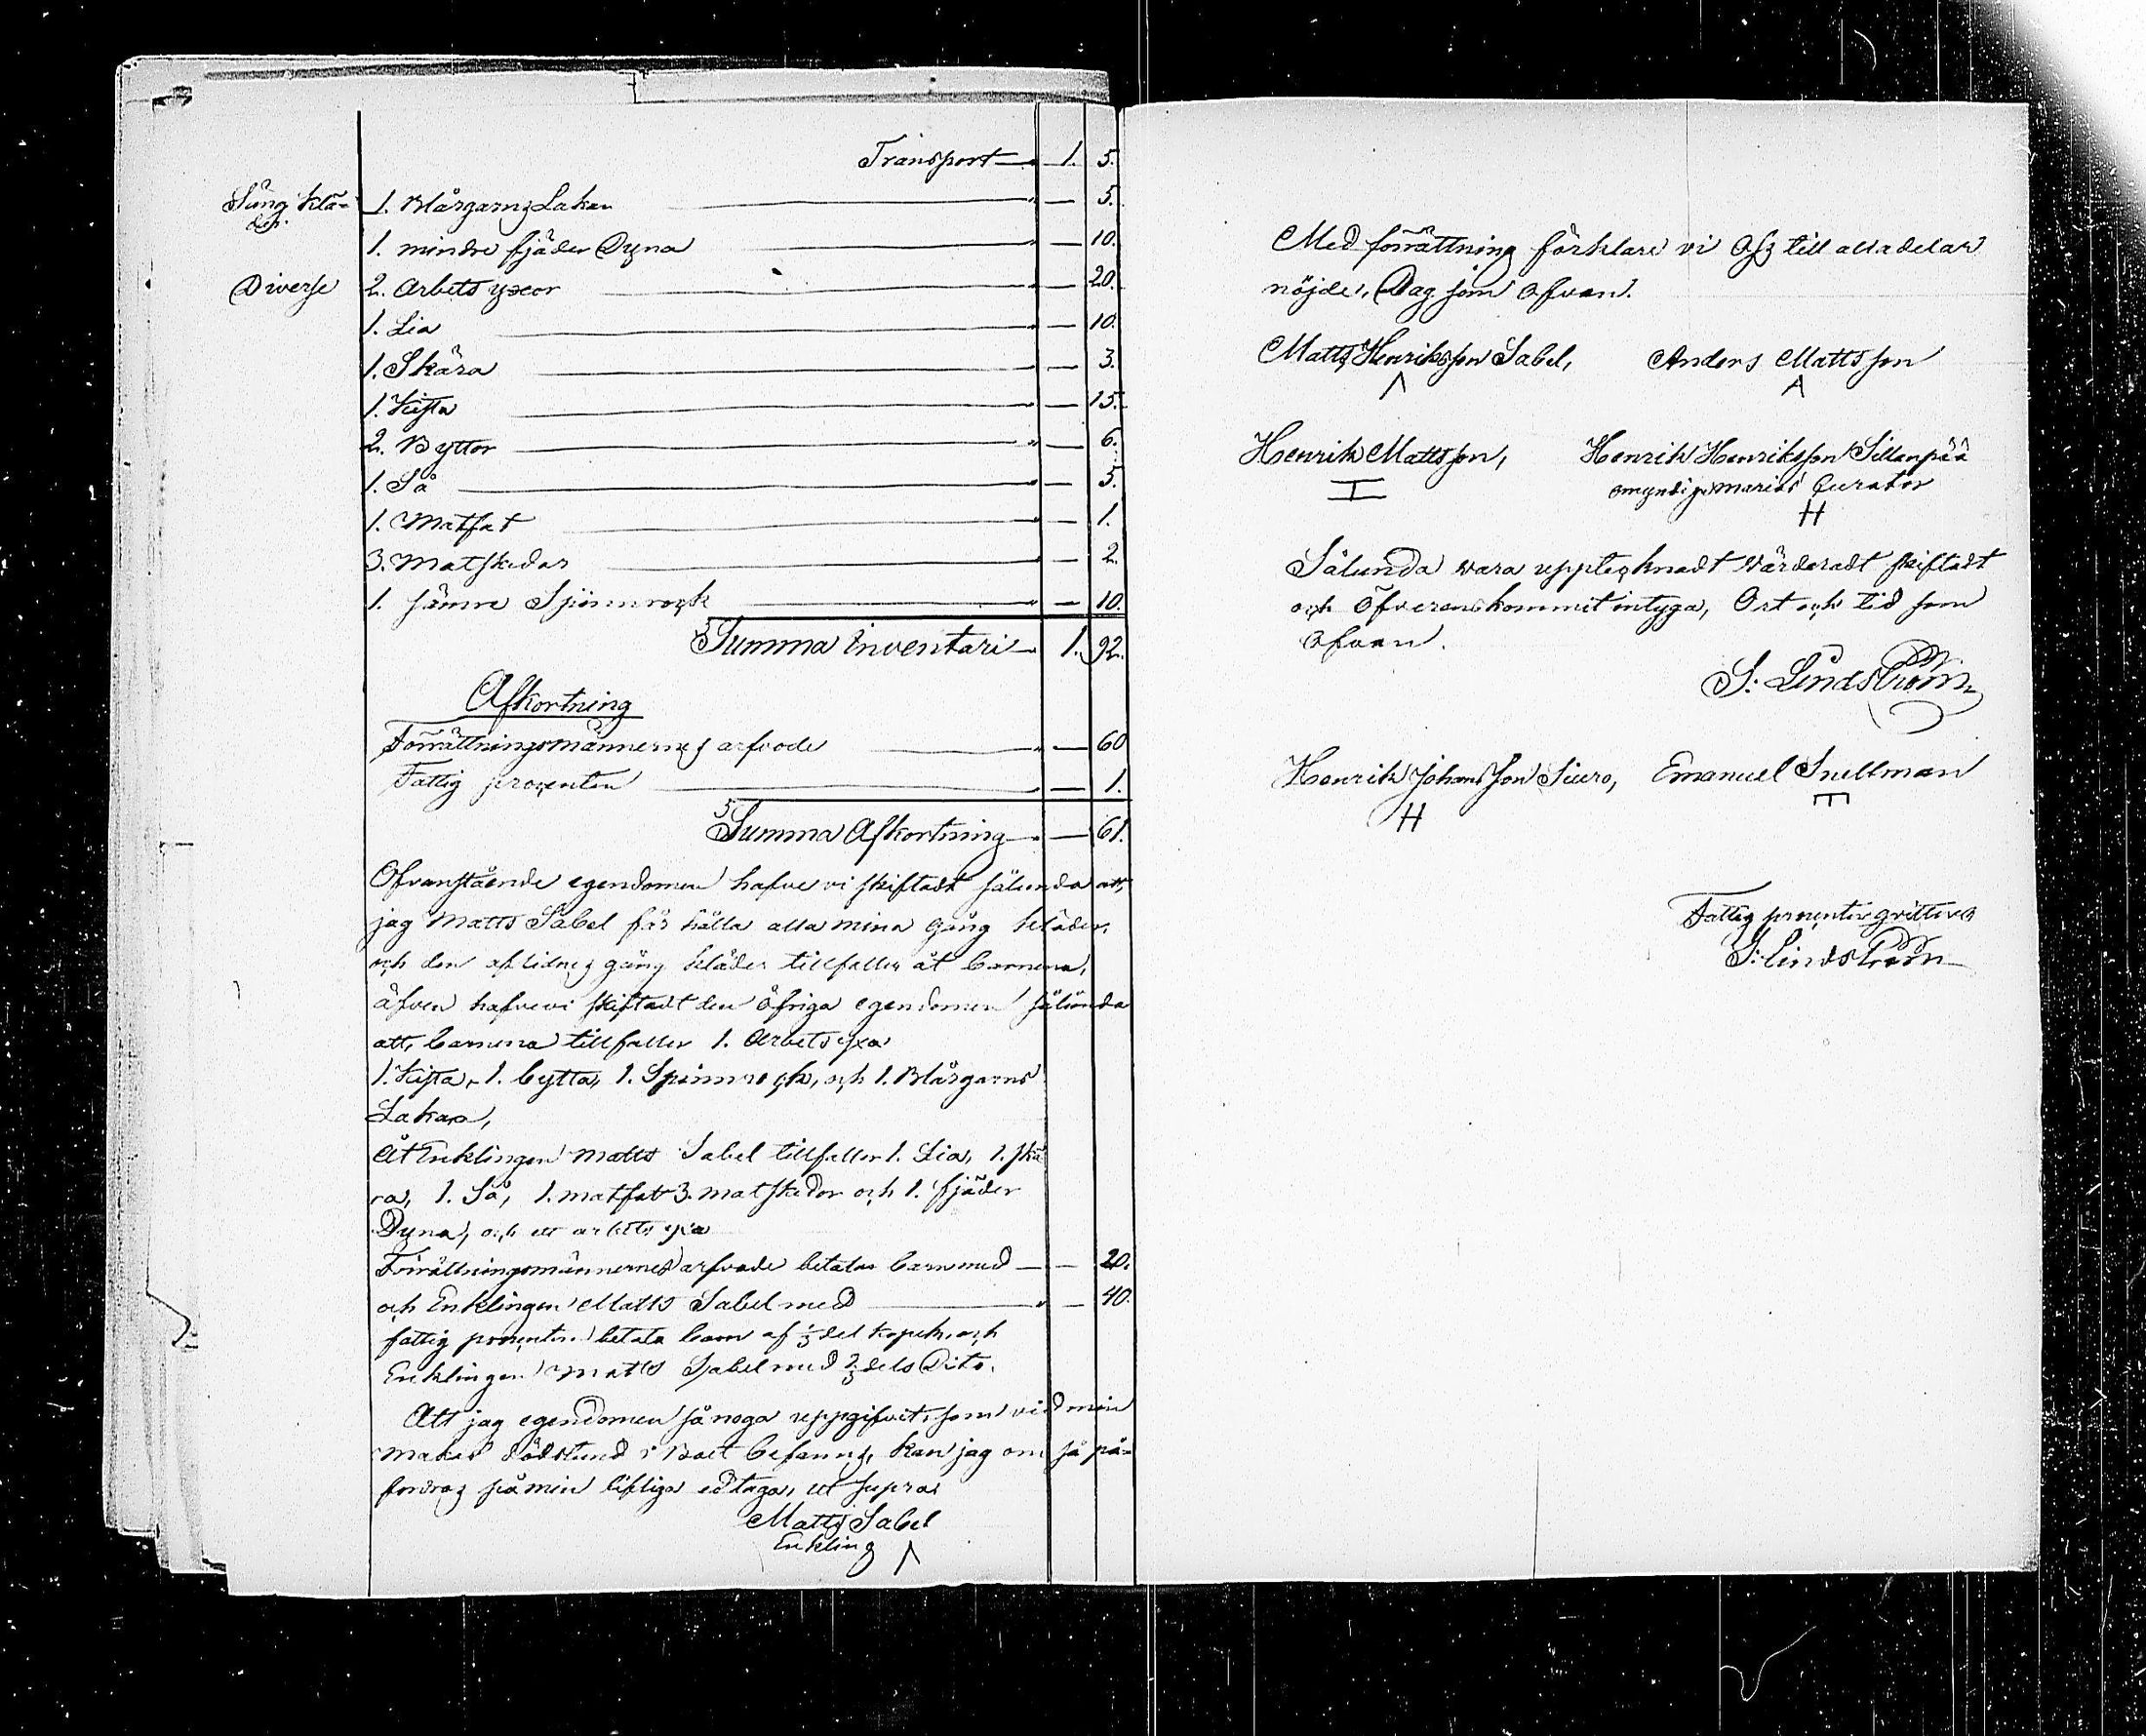 Transport — 1. 5.
Sängklä-
der.
1. Blårgarns Lakan — 5.
1. mindre fjäder Dyna — 10.
Diverse 2. Arbets yxor — 20.
1. Lia — 10.
1. Skära — 3.
1. Kista — 15.
2. Byttor — 6.
1. Så — 5.
1. Matfat — 1.
3. Matskedar — 2.
1. sämre Spinnrock — 10.
Summa inventari — 1. 92.
Afkortning
Förrättningsmännernes arfvode — 60
Fattig procenten — 1.
Summa Afkortning — 61.
Ofvanstående egendomen hafve vi skiftadt sålunda att,
jag Matts Sabel får hålla alla mina gång kläder,
och den aflidnes gång kläder tillfaller åt barnena,
äfven hafve vi skiftadt den öfriga egendomen sålunda
att, barnena tillfaller 1. Arbets yxa
1. Kista, 1. bytta, 1. Spinnrock, och 1. Blårgarns
Lakan,
Åt Enklingen Matts Sabel tillfaller 1. Lia, 1. skä
ra, 1. Så, 1. matfat 3. matskedor och 1. fjäder
Dyna, och en arbets yxa
Förrättningsmännernes arfvode betalar barn med — 20.
och Enklingen Matts Sabel med — 40.
fattig procenten betala barn af 1/3 del kopek, och
Enklingen Matts Sabel med 2/3 dels Dito.
Att jag egendomen så noga uppgifvit, som vid min
makas dödstund i Boet befanns, kan jag om så på-
fordras på min lifliga ed taga, ut supra
Matts Sabel
Enkling
Med förrättning förklare vi Oss till alla delar
nöjde, Dag som ofvan.
Matts Henriksson Sabel, Anders Mattsson
Henrik Mattsson, Henrik Henriksson Sillanpää
omyndige Marias Curator
H
Sålunda vara upptecknadt värderadt skiftadt
och öfverenskommit intyga, Ort och tid som
ofvan.
S. Lindström
Henrik Johansson Siuro, Emanuel Snellman
H
Fattig procenten qvitteras
S. Lindström